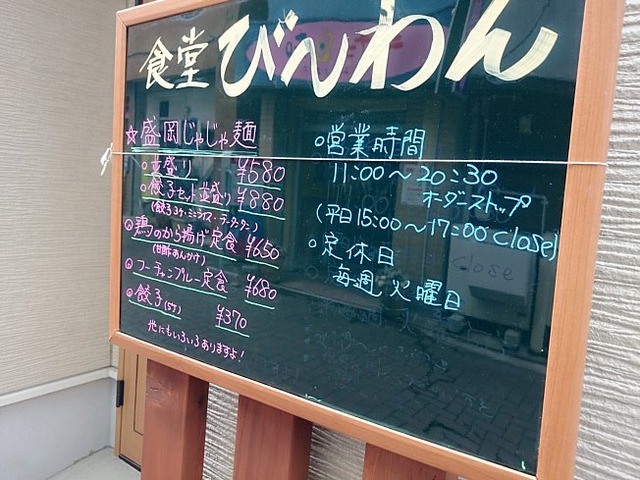 食堂 びんわん
☆盛岡じゃじゃ麺
○並盛り ¥580
○餃子セット並盛り ¥880
○鶏のから揚げ定食 ¥650
(甘酢あんかけ)
○フーチャンプルー定食 ¥680
○餃子(5ケ) ¥370
他にもいろいろありますよ!
○営業時間
11:00〜20:30
オーダーストップ
(平日15:00〜17:00 close)
○定休日
毎週火曜日
close